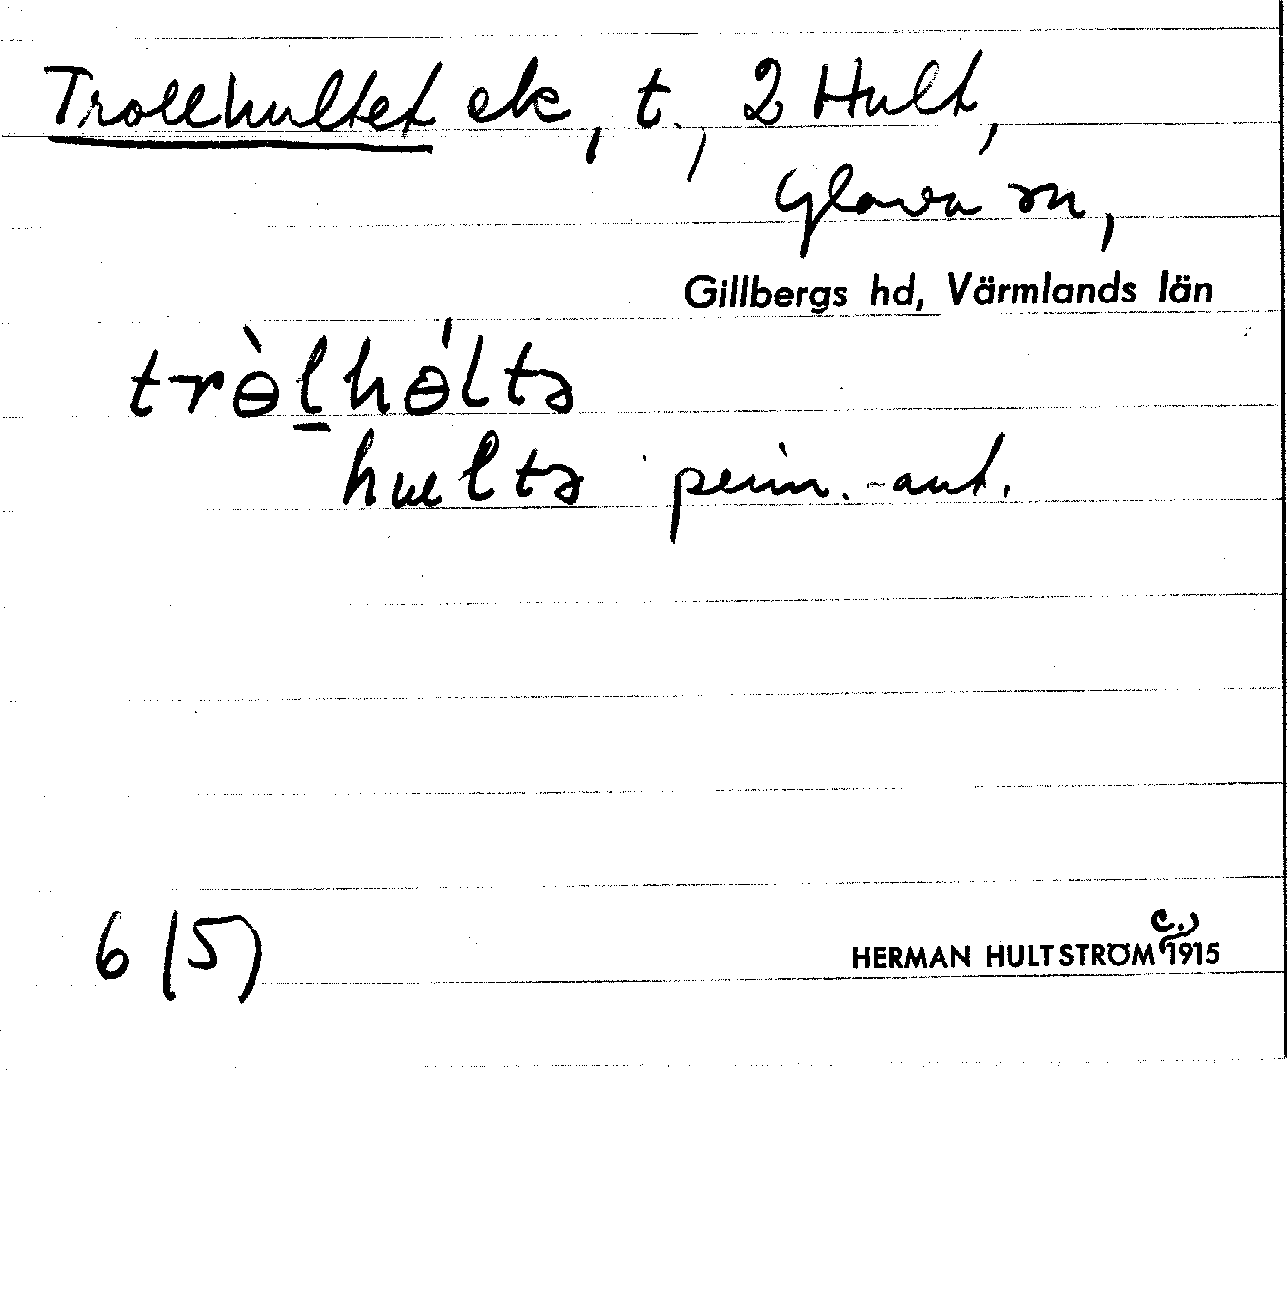 Trollhultet ek, t., 2 Hult,
Glava sn,
Gillbergs hd, Värmlands län
trɵ̀l̲hɵ́ltə
hueltə
6 (5)
HERMAN HULTSTRÖM c.) 1915